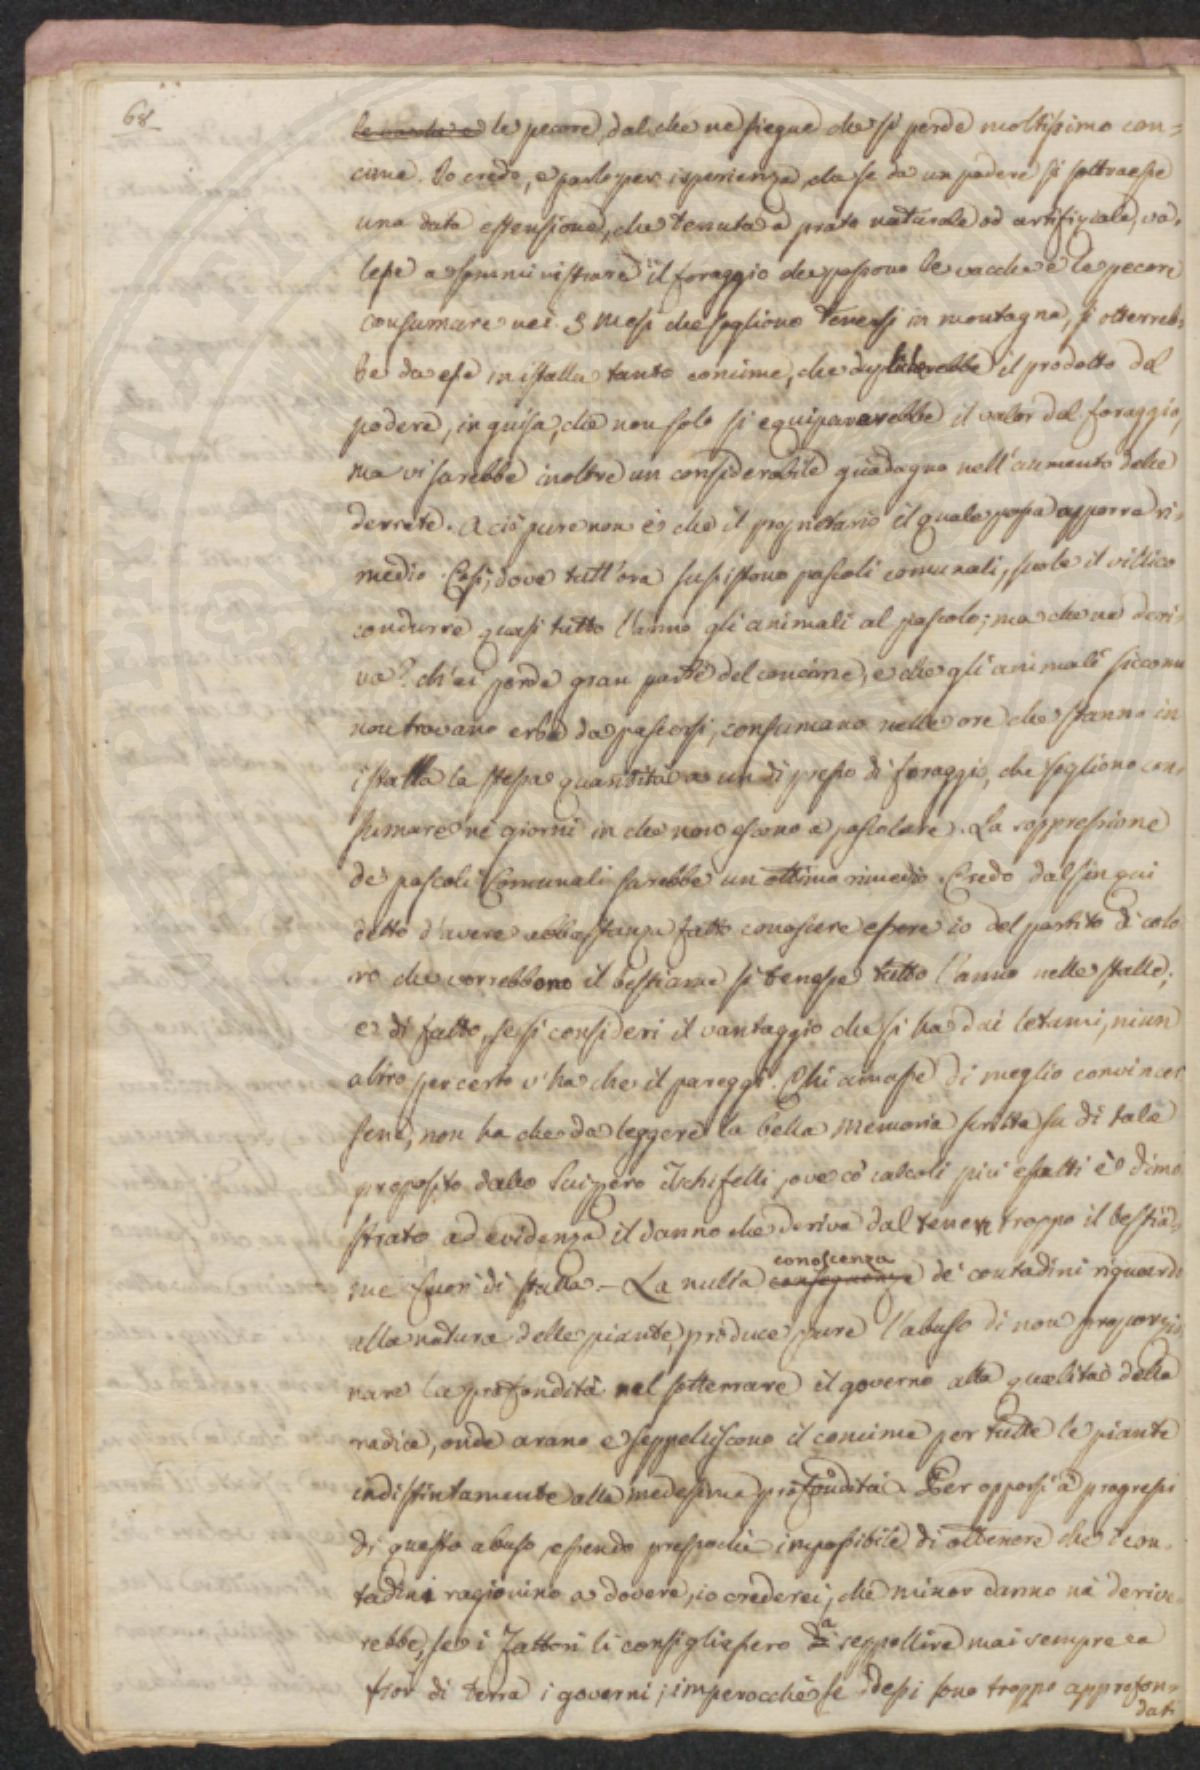 68
le vache e le pecore, dal che ne siegue che si perde moltissimo con=
cime. Io credo, e parlo per isperienza, che se da un podere si sottraesse
una data estensione, che tenuta a prato naturale od artifiziale, va=
lesse a somministrare il foraggio che possono le vacche e le pecore
consumare nei 3 mesi che sogliono tenersi in montagna, si otterreb=
be da esse in istalla tanto concime, che duplicherebbe il prodotto del
podere, in guisa, che non solo si equiparerebbe il valor del foraggio,
ma vi sarebbe inoltre un considerabile guadagno nell'aumento delle
derrate. A ciò pure non è che il proprietario il quale possa apporre ri=
medio. Così, dove tutt'ora sussistono pascoli comunali, suole il villico
condurre quasi tutto l'anno gli animali al pascolo; ma che ne deri=
va? ch'ei perde gran parte del concime, e che gli animali siccome
non trovano erba da pascersi, consumano nelle ore che stanno in
istalla la stessa quantità a un di presso di foraggio, che sogliono con=
sumare nei giorni in che non escono a pascolare. La soppressione
de' pascoli Comunali sarebbe un ottimo rimedio. Credo dal fin qui
detto d'avere abbastanza fatto conoscere essere io del partito di colo
ro che vorrebbono il bestiame si tenesse tutto l'anno nelle stalle;
e di fatto, se si consideri il vantaggio che si ha dai letami, niun
altro per certo v'ha che il pareggi. Chi amasse di meglio convincer
sene, non ha che da leggere la bella Memoria scritta su di tale
proposito dallo Svizzero Tschifelli, ove co' calcoli più esatti è dimo
strato ad evidenza il danno che deriva dal tener troppo il bestia=
me fuori di stalla. – La nulla conseguenza conoscenza de' contadini riguardo
alla natura delle piante, produce pure l'abuso di non proporzio
nare la profondità nel sotterrare il governo alla qualità della
radice, onde arano e seppelliscono il concime per tutte le piante
indistintamente alla medesima profondità. Per opporsi a' progressi
di questo abuso essendo pressochè impossibile di ottenere che i con=
tadini ragionino a dovere, io crederei, che minor danno ne derive=
rebbe, se i Fattori li consigliassero di a seppellire mai sempre a
fior di terra i governi; imperocchè se dessi sono troppo approfon=
dati